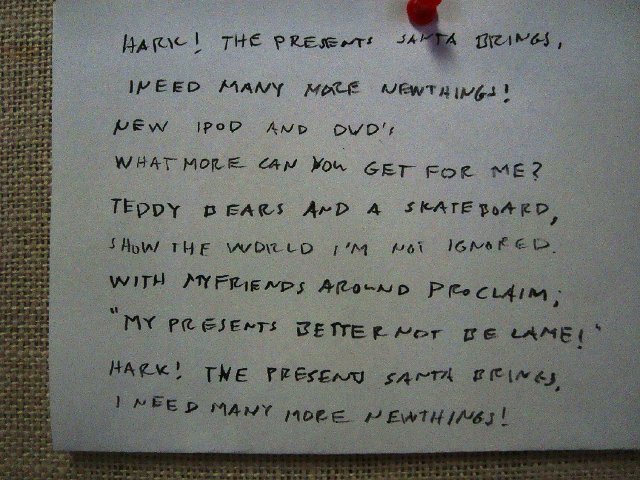 HARK! THE PRESENTS SANTA BRINGS,
I NEED MANY MORE NEW THINGS!
NEW IPOD AND DVD'S
WHAT MORE CAN YOU GET FOR ME?
TEDDY BEARS AND A SKATEBOARD,
SHOW THE WORLD I'M NOT IGNORED.
WITH MY FRIENDS AROUND PROCLAIM;
"MY PRESENTS BETTER NOT BE LAME!"
HARK! THE PRESENTS SANTA BRINGS,
I NEED MANY MORE NEW THINGS!